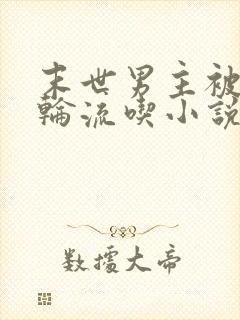 末世男主被
輪流喫小説
数據大帝